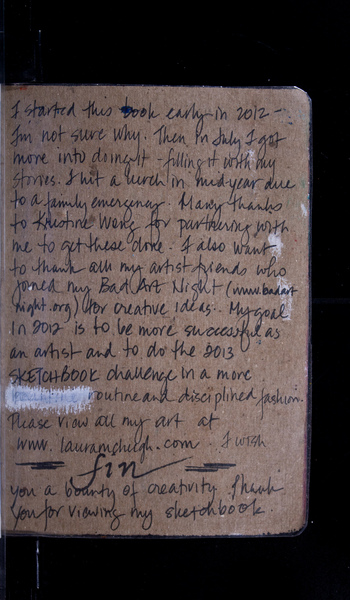 I started this book early in 2012 -
I'm not sure why. Then in July I got
more into doing it - filling it with my
stories. I hit a lurch in mid year due
to a family emergency. Many thanks
to Kristine Wong for partnering with
me to get these done. I also want
to thank all my artist friends who
joined my Bad Art Night (www.badart
night.org) for creative ideas. My goal
in 2012 is to be more successful as
an artist and to do the 2013
SKETCHBOOK challenge in a more
routine and disciplined fashion.
Please view all my art at
www.lauramchugh.com. I wish
fin
you a bounty of creativity. Thank
you for viewing my sketchbook.